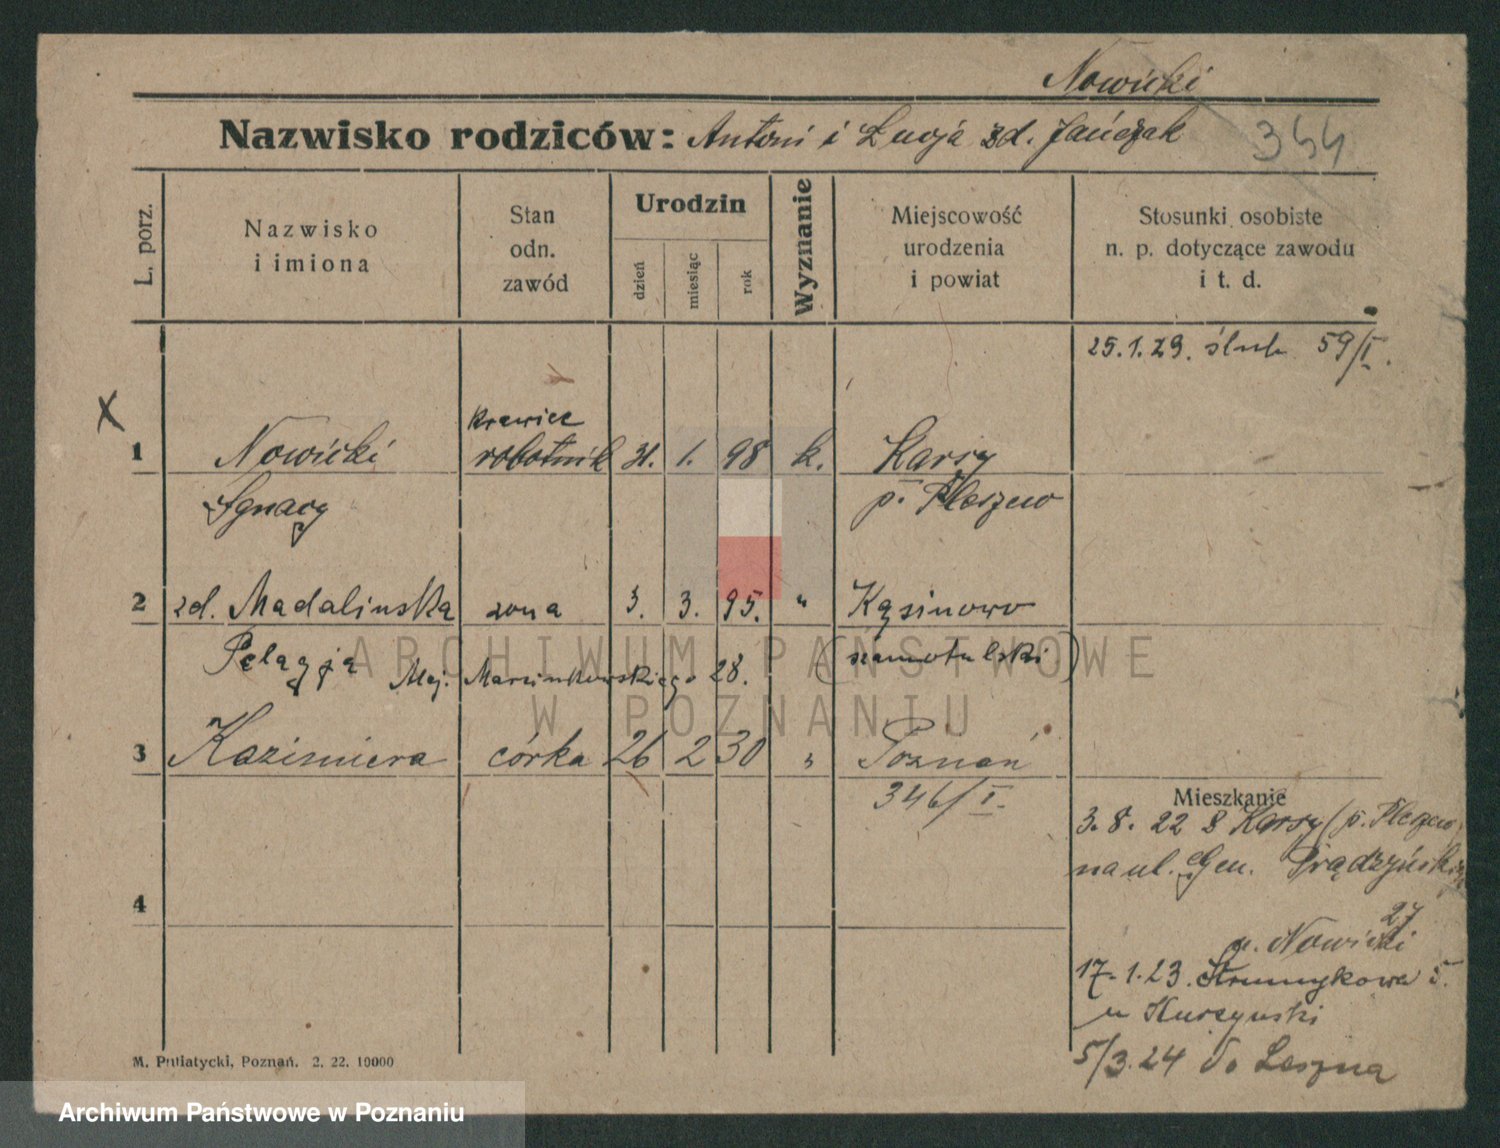 Nowicki
Nazwisko rodziców: Antoni i Łucja zd. Jańczak
344
L. porz.
Nazwisko
i imiona
Stan
odn.
zawód
Urodzin
dzień
miesiąc
rok
Wyznanie
Miejscowość
urodzenia
i powiat
Stosunki osobiste
n. p. dotyczące zawodu
i t. d.
25.1.29. ślub 59/I.
X
krawiec
1 Nowicki robotnik 31. 1. 98 k. Karsy
Ignacy p. Pleszew
2 zd. Madalinska zona 3. 3. 95. " Kąsinowo
Pelagja (szamotulski)
Alej. Marcinkowskiego 28.
3 Kazimiera córka 26 2 30 " Poznań
346/I.
Mieszkanie
3.8.22 z Karsy (p. Pleszew)
na ul. Gen. Prądzyńskiego
27
u. Nowicki
17.1.23. Strumykowa 5.
u Kurzynski
5/3.24 do Leszna
4
M. Putiatycki, Poznań. 2. 22. 10000
ARCHIWUM PAŃSTWOWE
W POZNANIU
Archiwum Państwowe w Poznaniu